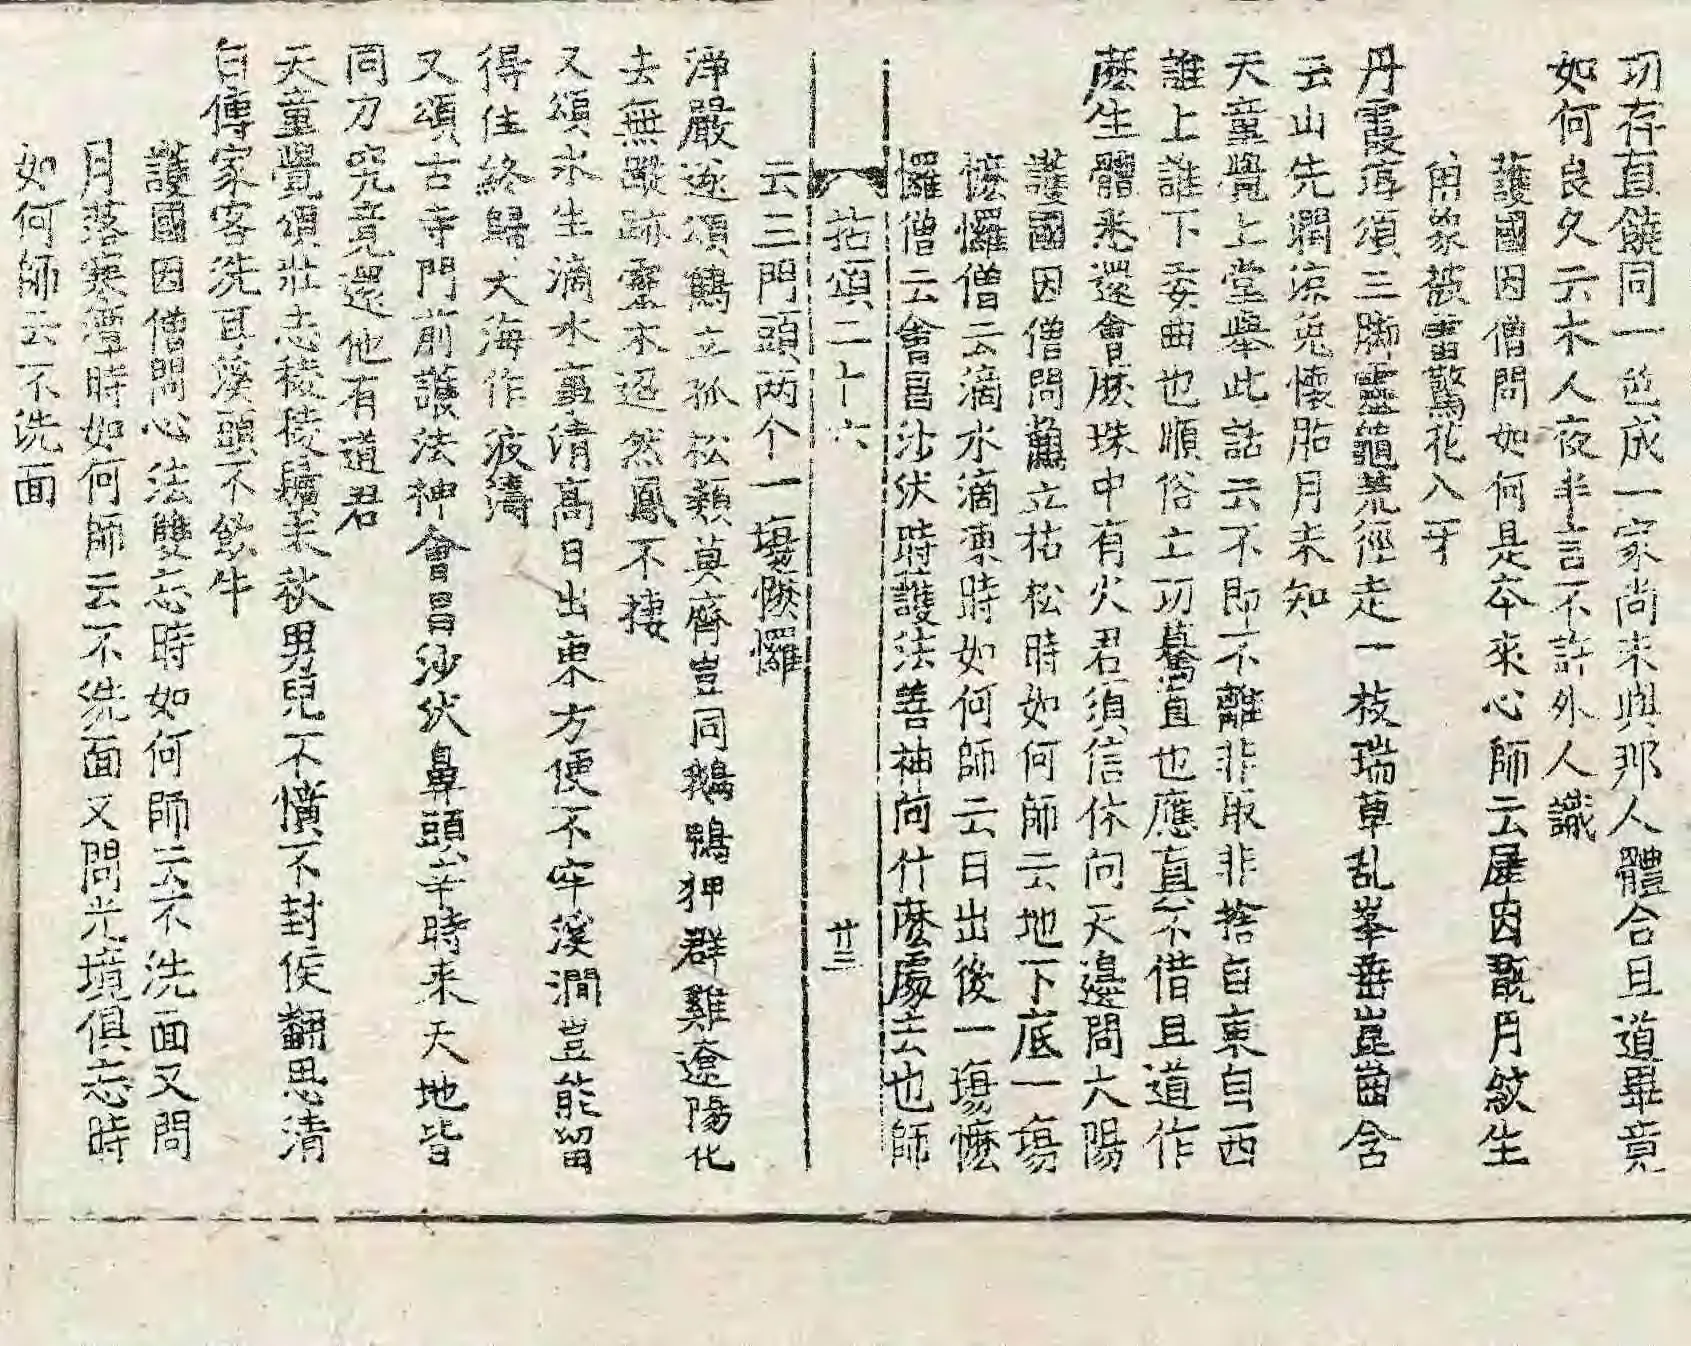 功存直饒同一色成一家尚未與那人體合且道畢竟
如何良久云木人夜半言不許外人識
護國因僧問如何是本來心師云犀因翫月紋生
角象被雷驚花入牙
丹霞淳頌三脚靈龜荒徑走一枝瑞草乱峯垂崑崗含
玉山先潤凉兎懷胎月未知
天童覺上堂舉此話云不即不離非取非捨自東自西
誰上誰下委曲也順俗土功驀直也應真不借且道作
麽生體悉還會麽珠中有火君須信休向天邊問大陽
護國因僧問鶴立枯松時如何師云地下底一塲
懡㦬僧云滴水滴凍時如何師云日出後一塲懡
㦬僧云會昌沙汰時護法善神向什麽處去也師
拈頌二十六
廿三
云三門頭两个一塲懡㦬
淨嚴遂頌鶴立孤松類莫齊豈同鵝鴨狎群雞遼陽化
去無蹤跡靈木迢然鳳不棲
又頌氷生滴水事清高日出東方便不牢溪澗豈能留
得住終歸大海作波濤
又頌古寺門前護法神會昌沙汰鼻頭辛時来天地皆
同力究竟還他有道君
天童覺頌壯志稜稜鬢未秋男兒不憤不封侯翻思清
白傳家客洗耳溪頭不飲牛
護國因僧問心法雙忘時如何師云不洗面又問
月落寒潭時如何師云不洗面又問光境俱忘時
如何師云不洗面